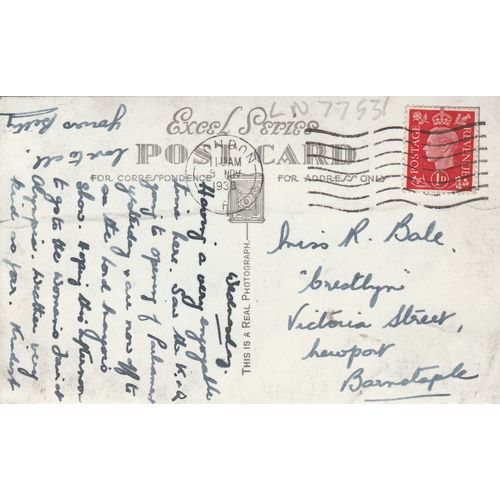 LN 77531
EXCEL SERIES
POST CARD
FOR CORRESPONDENCE
FOR ADDRESS ONLY
LONDON
11 AM
9 NOV
1938
POSTAGE
REVENUE
1D
THIS IS A REAL PHOTOGRAPH.
Wednesday
Having a very enjoyable
time here. Saw the King
going to opening of Parliament
yesterday & are now off to
see the Lord Mayor's
Show. Hoping this afternoon
to go to the Women's Institute
Olympia. Weather very
kind so far.
Love to all.
Yours Betty
Miss R. Bale.
"Crestlyn"
Victoria Street,
Newport
Barnstaple